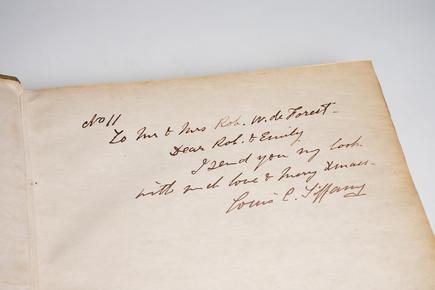 No 11
To Mr & Mrs Rob. W. de Forest
Dear Rob. & Emily
I send you my book
with much love & Merry Xmas.
Louis C. Tiffany